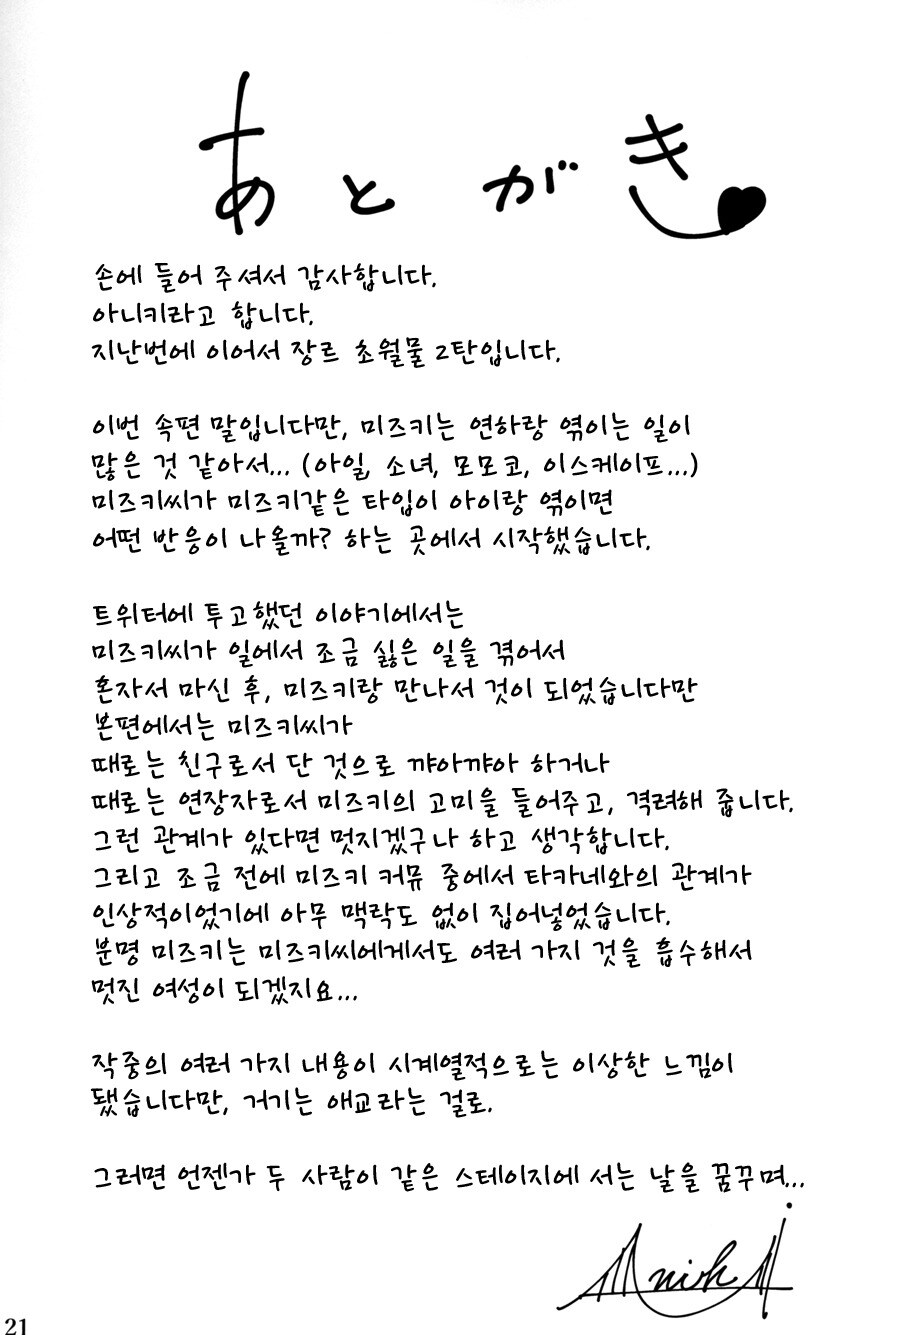 あとがき
손에 들어 주셔서 감사합니다.
아니키라고 합니다.
지난번에 이어서 장르 초월물 2탄입니다.
이번 속편 말입니다만, 미즈키는 연하랑 엮이는 일이
많은 것 같아서... (아일, 소녀, 모모코, 이스케이프...)
미즈키씨가 미즈키같은 타입이 아이랑 엮이면
어떤 반응이 나올까? 하는 곳에서 시작했습니다.
트위터에 투고했던 이야기에서는
미즈키씨가 일에서 조금 싫은 일을 겪어서
혼자서 마신 후, 미즈키랑 만나서 것이 되었습니다만
본편에서는 미즈키씨가
때로는 친구로서 단 것으로 꺄아꺄아 하거나
때로는 연장자로서 미즈키의 고미을 들어주고, 격려해 줍니다.
그런 관계가 있다면 멋지겠구나 하고 생각합니다.
그리고 조금 전에 미즈키 커뮤 중에서 타카네와의 관계가
인상적이었기에 아무 맥락도 없이 집어넣었습니다.
분명 미즈키는 미즈키씨에게서도 여러 가지 것을 흡수해서
멋진 여성이 되겠지요...
작중의 여러 가지 내용이 시계열적으로는 이상한 느낌이
됐습니다만, 거기는 애교라는 걸로.
그러면 언젠가 두 사람이 같은 스테이지에 서는 날을 꿈꾸며...
Aniki
21